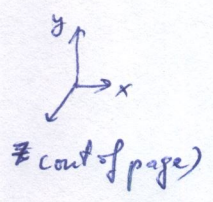 y
x
z (out of page)